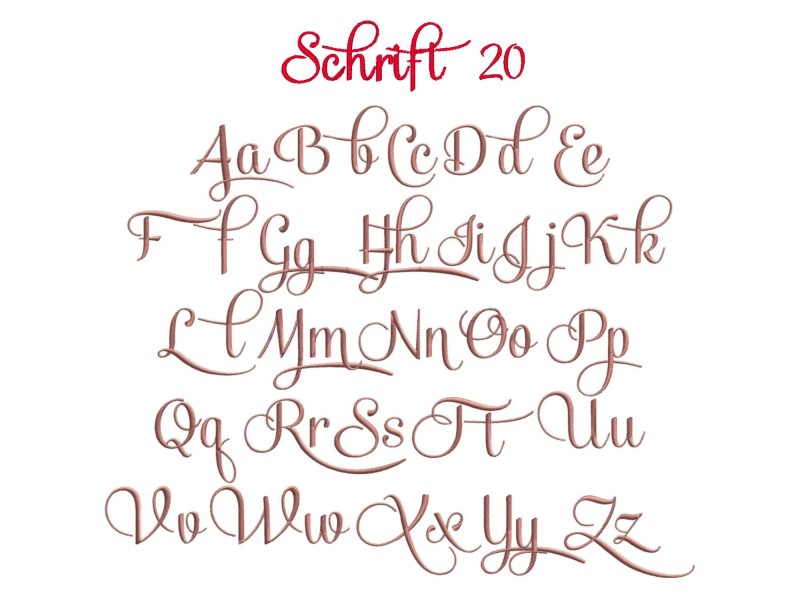 Schrift 20
Aa Bb Cc Dd Ee
Ff Gg Hh Ii Jj Kk
Ll Mm Nn Oo Pp
Qq Rr Ss Tt Uu
Vv Ww Xx Yy Zz